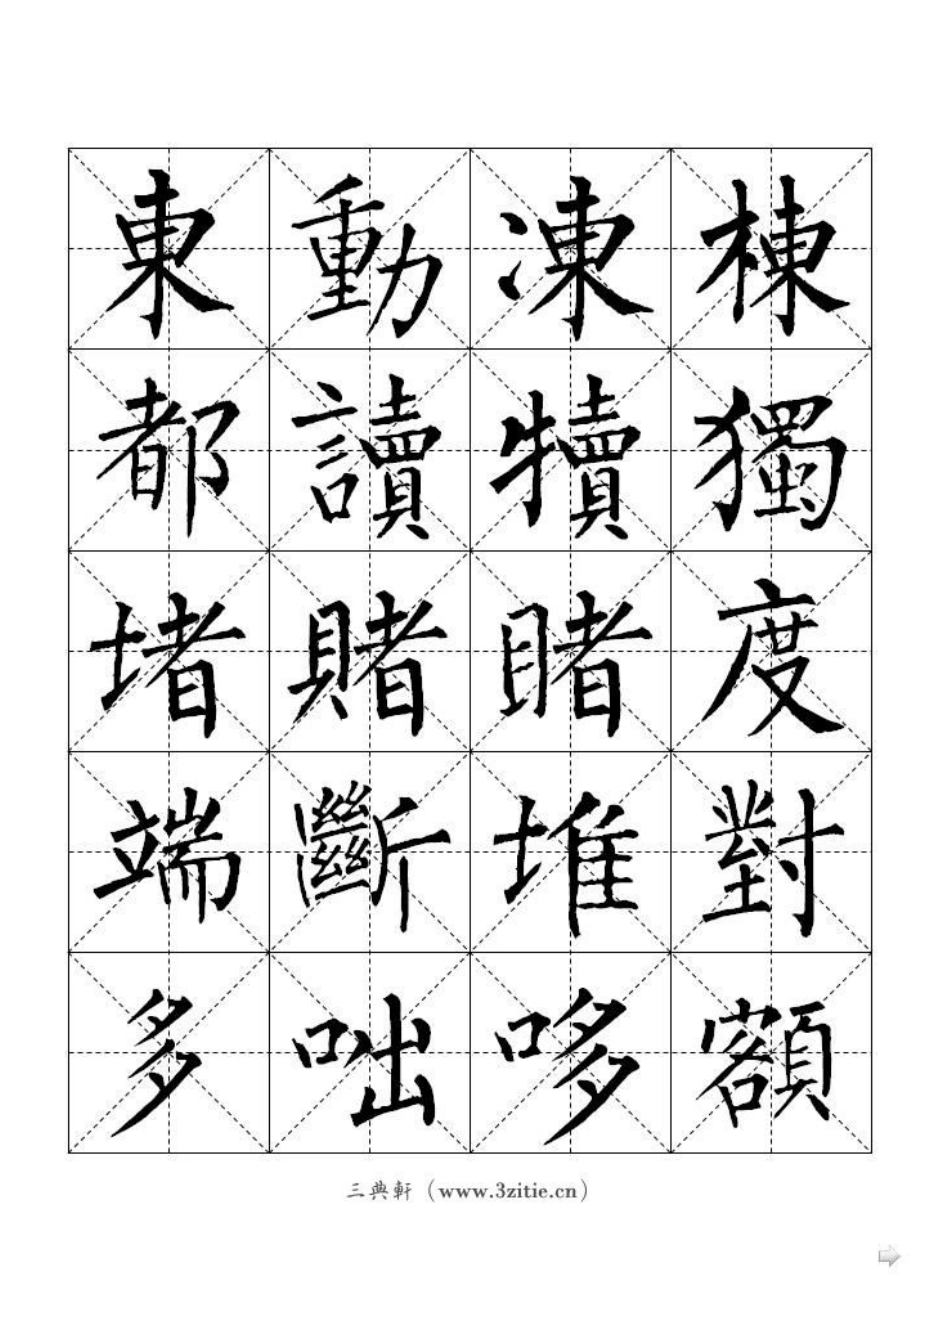 東動凍棟
都讀犢獨
堵賭睹度
端斷堆對
多咄哆額
三典軒（www.3zitie.cn）